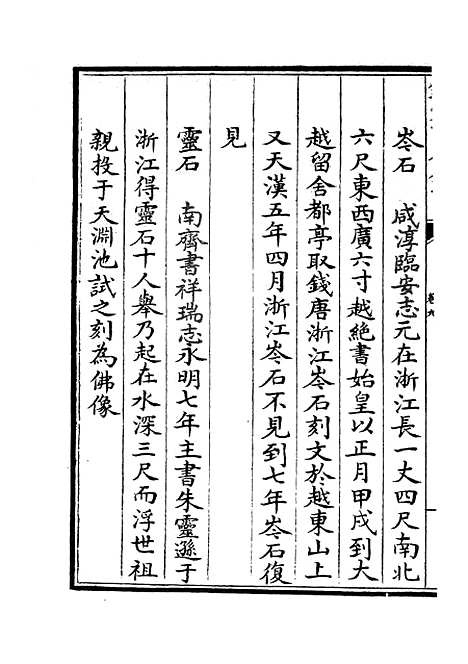 岑石　咸淳臨安志元在浙江長一丈四尺南北
六尺東西廣六寸越絶書始皇以正月甲戌到大
越留舍都亭取錢唐浙江岑石刻文於越東山上
又天漢五年四月浙江岑石不見到七年岑石復
見
靈石　南齊書祥瑞志永明七年主書朱靈遜于
浙江得靈石十人舉乃起在水深三尺而浮世祖
親投于天淵池試之刻為佛像
卷九